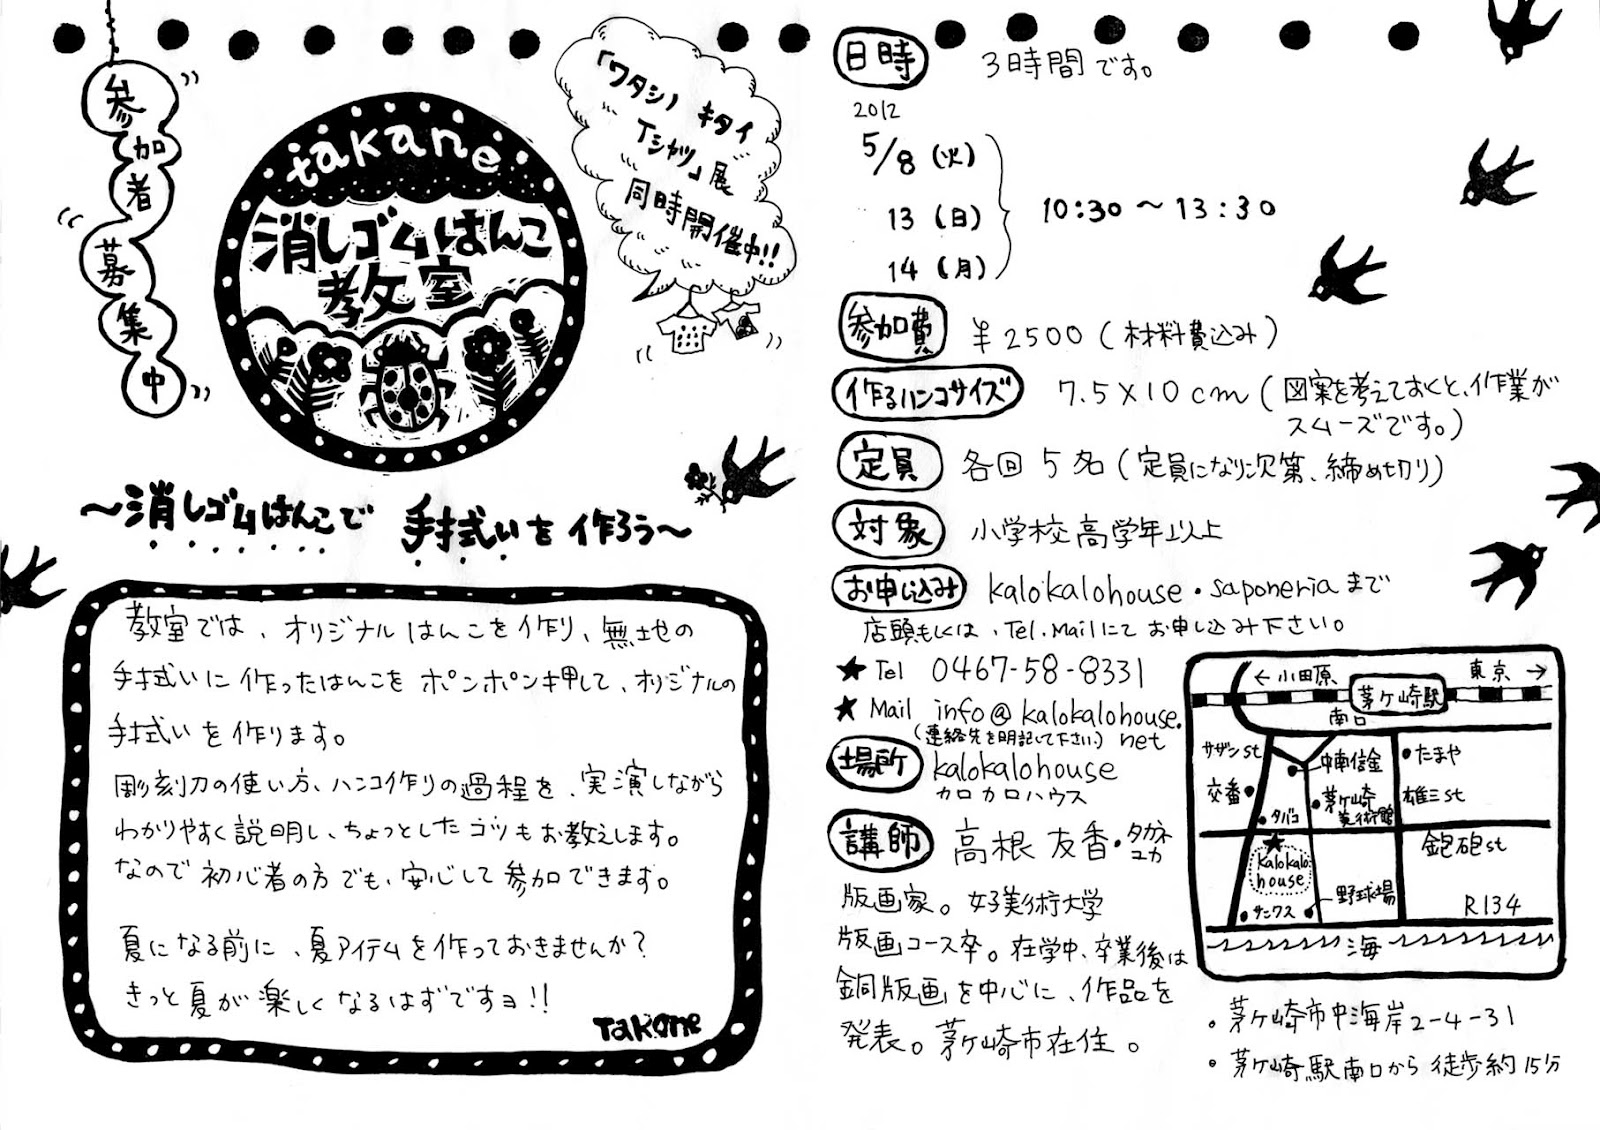 参加者募集中
takane
消しゴムはんこ
教室
「ワタシノ キタイ
Tシャツ」展
同時開催中!!
〜消しゴムはんこで 手拭いを作ろう〜
教室では、オリジナルはんこを作り、無地の
手拭いに作ったはんこをポンポン押して、オリジナルの
手拭いを作ります。
彫刻刀の使い方、ハンコ作りの過程を、実演しながら
わかりやすく説明し、ちょっとしたコツもお教えします。
なので初心者の方でも、安心して参加できます。
夏になる前に、夏アイテムを作っておきませんか？
きっと夏が楽しくなるはずですヨ!!
Takane
日時 3時間です。
2012
5/8(火)
13(日)
14(月)
10:30〜13:30
参加費 ¥2500(材料費込み)
作るハンコサイズ 7.5×10cm(図案を考えておくと、作業が
スムーズです。)
定員 各回5名(定員になり次第、締め切り)
対象 小学校高学年以上
お申し込み kalokalohouse・saponeriaまで
店頭もしくは、Tel.Mailにてお申し込み下さい。
★Tel 0467-58-8331
★Mail info@kalokalohouse.
(連絡先を明記して下さい) net
場所 kalokalohouse
カロカロハウス
講師 高根友香・タカネ
ユカ
版画家。女子美術大学
版画コース卒。在学中、卒業後は
銅版画を中心に、作品を
発表。茅ヶ崎市在住。
←小田原 東京→
茅ヶ崎駅
南口
サザンst
中南信金
たまや
交番
茅ヶ崎
美術館
雄三st
タバコ
鉄砲st
★
kalokalo
house
サニワス
野球場
R134
海
・茅ヶ崎市中海岸2-4-31
・茅ヶ崎駅南口から徒歩約15分